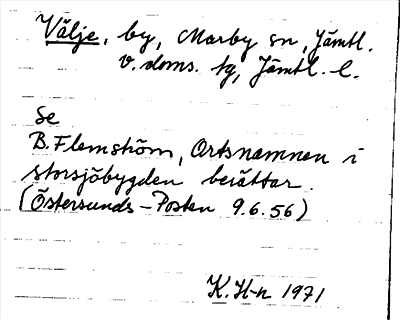 Välje, by, Marby sn, Jämtl.
v. doms. tg, Jämtl. l.
Se
B. Flemström, Ortsnamnen i
storsjöbygden berättar.
(Östersunds-Posten 9.6.56)
K. H-n 1971